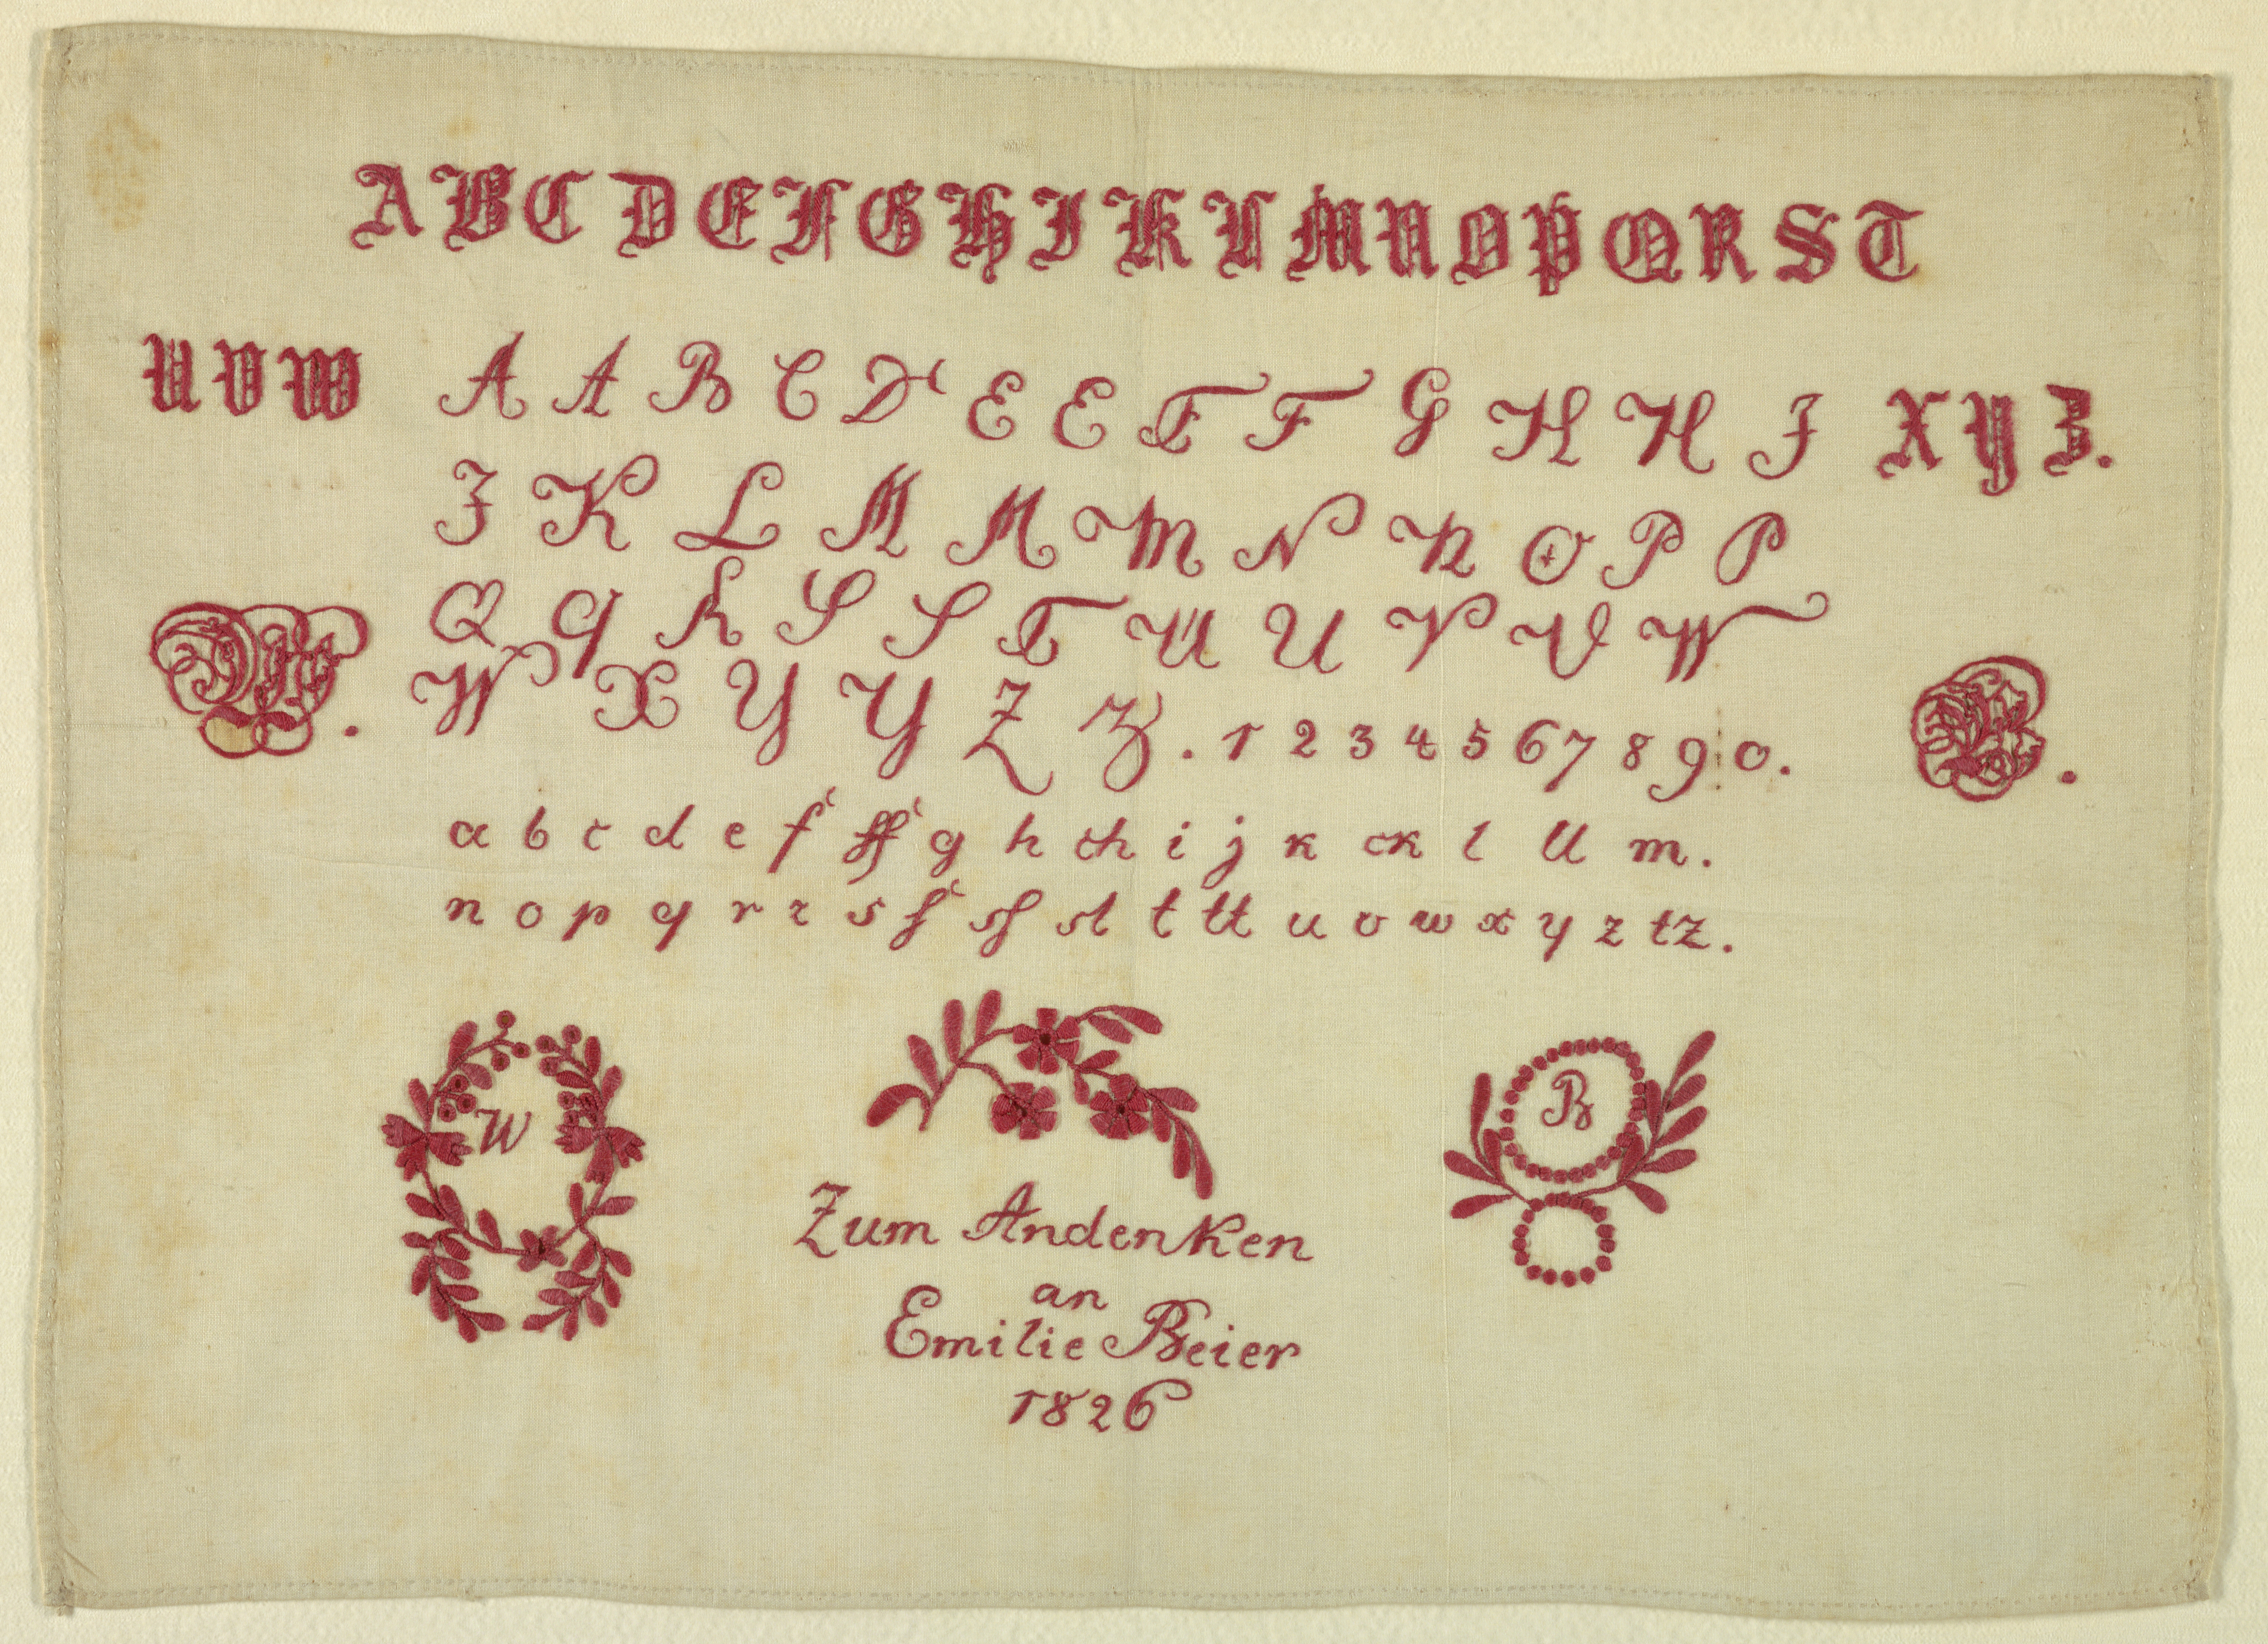 A B C D E F G H I K L M N O P Q R S T
U V W A A B C D E E F F G H H J X Y Z.
J K L M M M N N O P P
Q q R S S T U U V V W
W X Y Y Z Z. 1 2 3 4 5 6 7 8 9 0.
a b c d e f ff g h ch i j k ck l ll m.
n o p q r r s ſ sſ st t tt u v w x y z tz.
W
B
Zum Andenken
an
Emilie Beier
1826